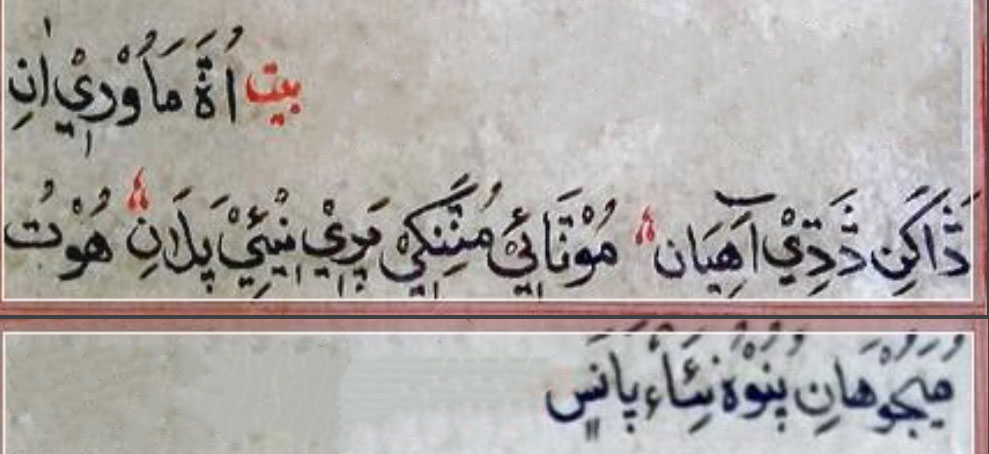 بيت اُٿَ مَاُوْرِيْ انِ
ذَاکَنِ ذَدِيْ آهِيَان مُوْتَائِيْ مُتَنِکِيْ پَرِيْ نِيْئِيْ پِلَانِ هُوْتُ
مُيَجُوْهَانِ پُنُوْهْ نِئَاءُ پَانَسِ